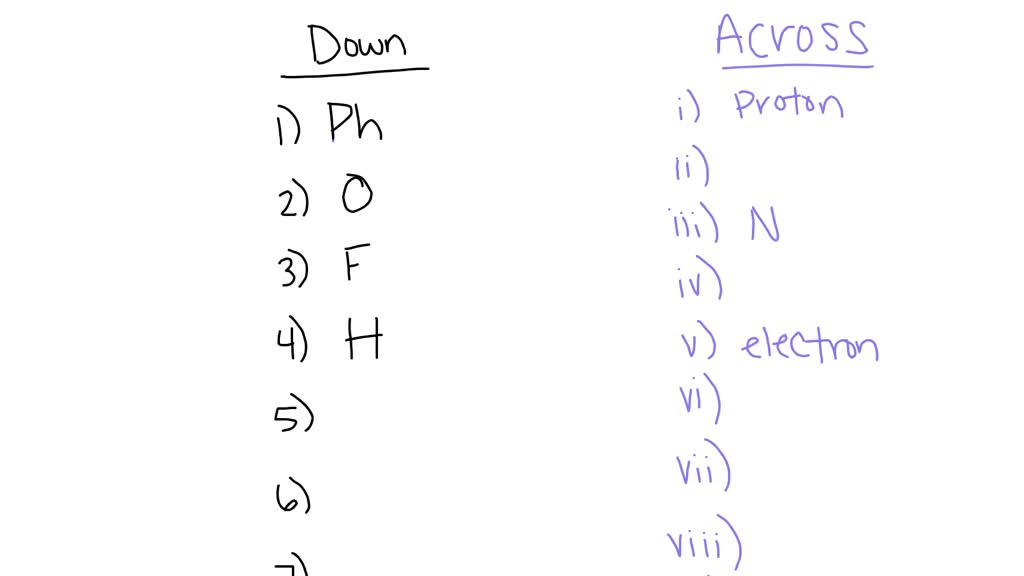 Down
1) Ph
2) O
3) F
4) H
5)
6)
7)
Across
i) Proton
ii)
iii) N
iv)
v) electron
vi)
vii)
viii)